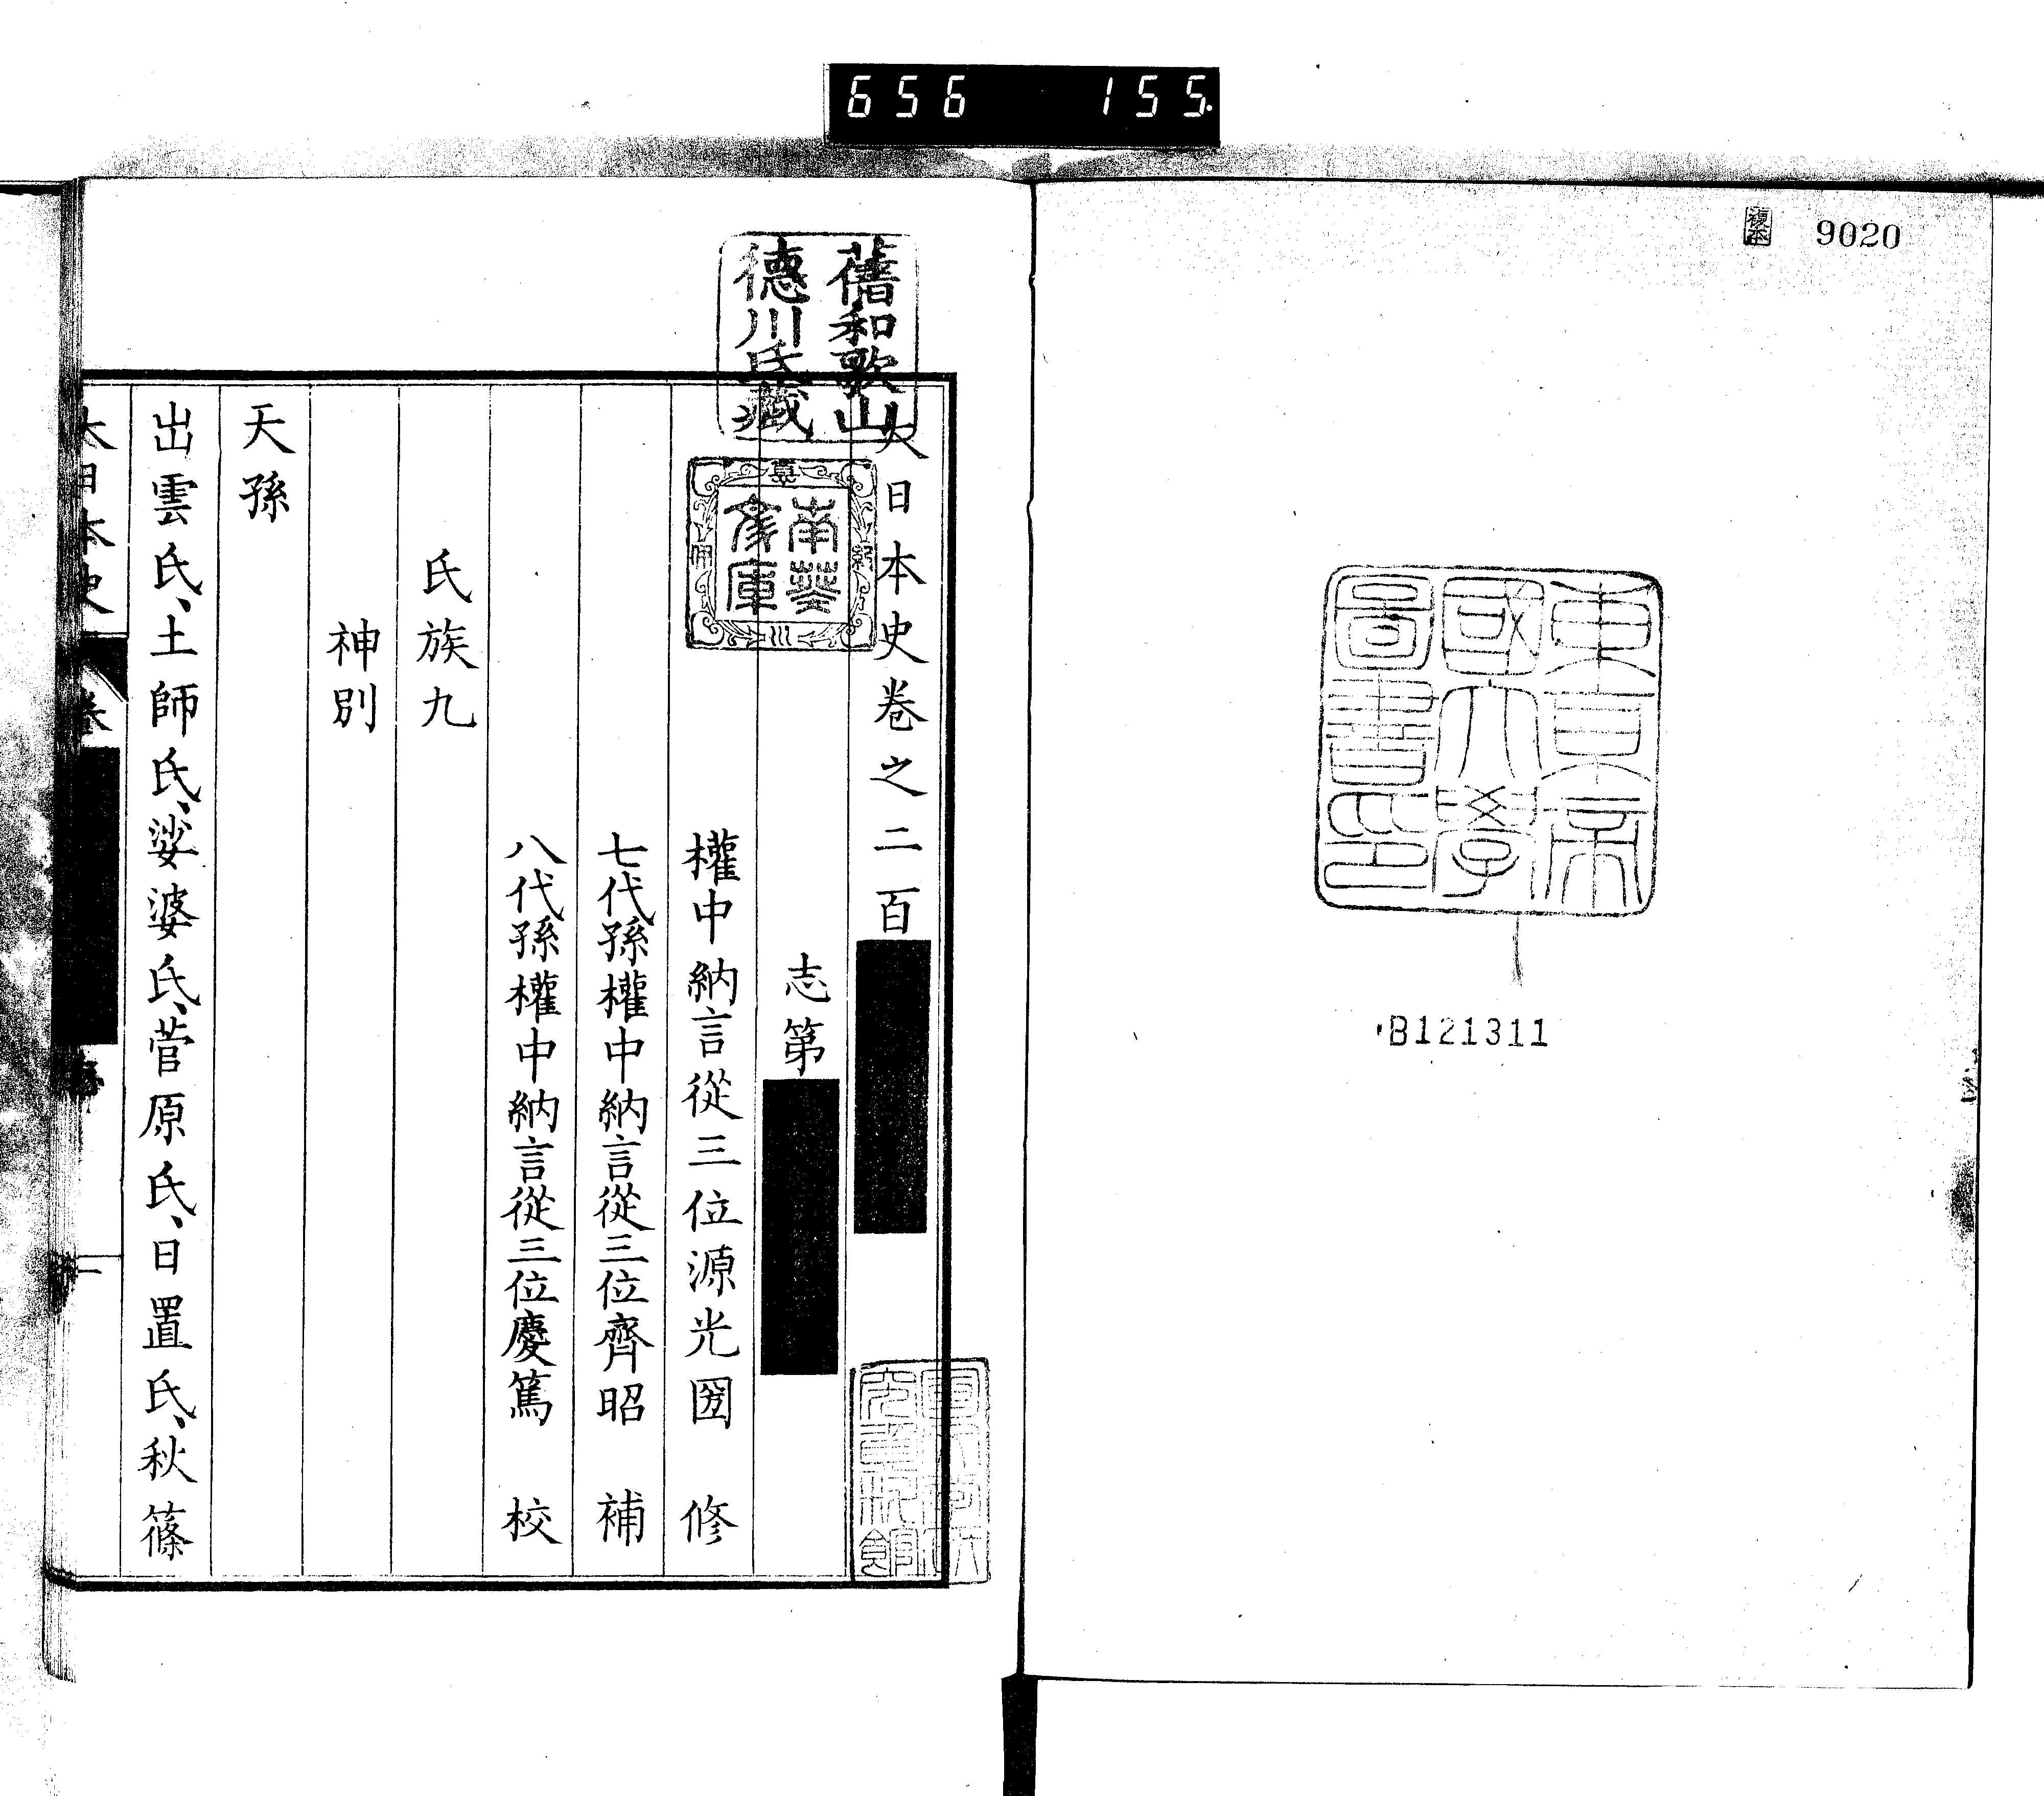 656 155.
複本
9020
東京帝
國大學
圖書印
B121311
舊和歌山
德川氏藏
南葵
文庫
大日本史卷之二百
志第
權中納言從三位源光圀 修
七代孫權中納言從三位齊昭 補
八代孫權中納言從三位慶篤 校
氏族九
神別
天孫
出雲氏、土師氏、娑婆氏、菅原氏、日置氏、秋篠
大日本史 卷